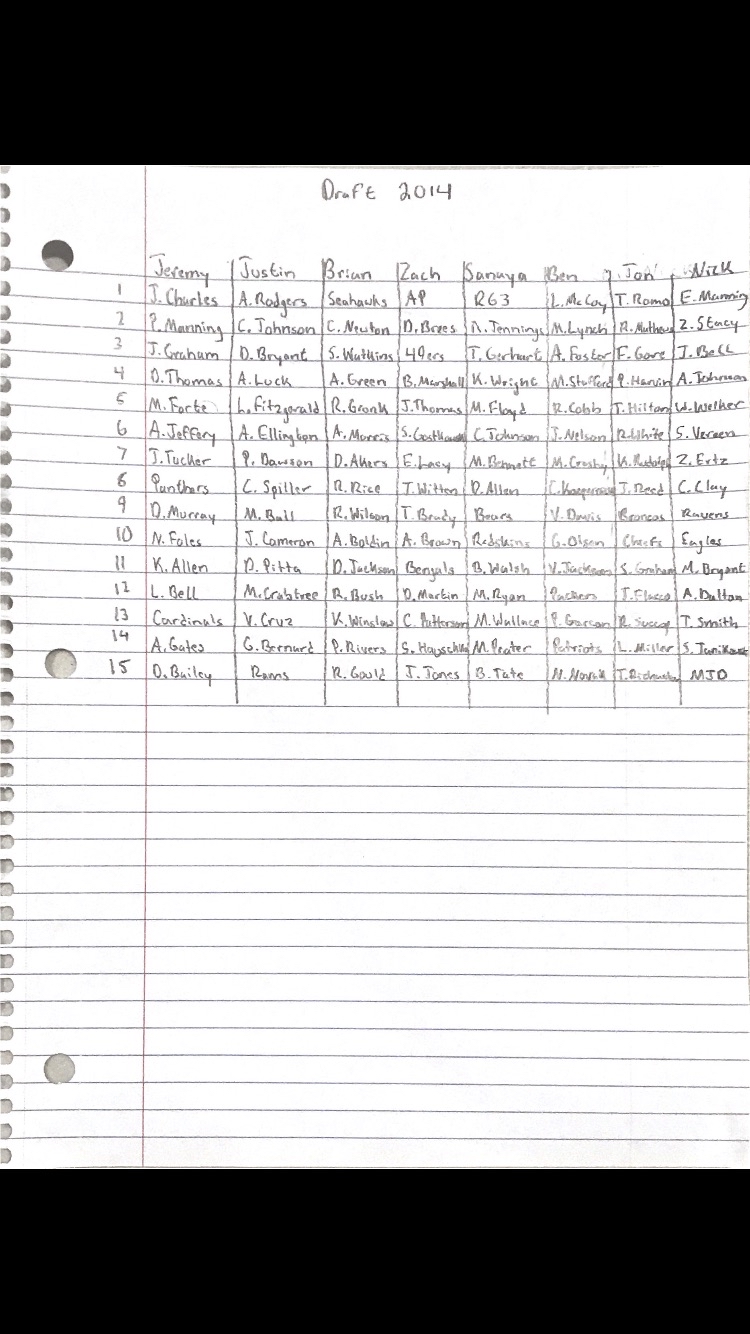 Draft 2014
Jeremy Justin Brian Zach Sanuya Ben Jon Nick
1 J. Charles A. Rodgers Seahawks AP RG3 L. McCoy T. Romo E. Manning
2 P. Manning C. Johnson C. Newton D. Brees R. Jennings M. Lynch R. Mathews Z. Stacy
3 J. Graham D. Bryant S. Watkins 49ers T. Gerhart A. Foster F. Gore J. Bell
4 D. Thomas A. Luck A. Green B. Marshall K. Wright M. Stafford P. Harvin A. Johnson
5 M. Forte L. Fitzgerald R. Gronk J. Thomas M. Floyd R. Cobb T. Hilton W. Welker
6 A. Jeffery A. Ellington A. Morris S. C. Johnson J. Nelson R. White S. Vereen
7 J. Tucker P. Dawson D. Akers E. Lacy M. Bennett M. Crosby K. Rudolph Z. Ertz
8 Panthers C. Spiller R. Rice J. Witten D. Allen C. J. Reed C. Clay
9 D. Murray M. Ball R. Wilson T. Brady Bears V. Davis Broncos Ravens
10 N. Foles J. Cameron A. Boldin A. Brown Redskins G. Olsen Chiefs Eagles
11 K. Allen D. Pitta D. Jackson Bengals B. Walsh V. Jackson S. Graham M. Bryant
12 L. Bell M. Crabtree R. Bush D. Martin M. Ryan Packers J. Flacco A. Dalton
13 Cardinals V. Cruz K. Winslow C. Patterson M. Wallace P. Garcon R. Succop T. Smith
14 A. Gates G. Bernard P. Rivers S. Hauschka M. Prater Patriots L. Miller S. Janikowski
15 D. Bailey Rams R. Gould J. Jones B. Tate N. Novak T. MJD